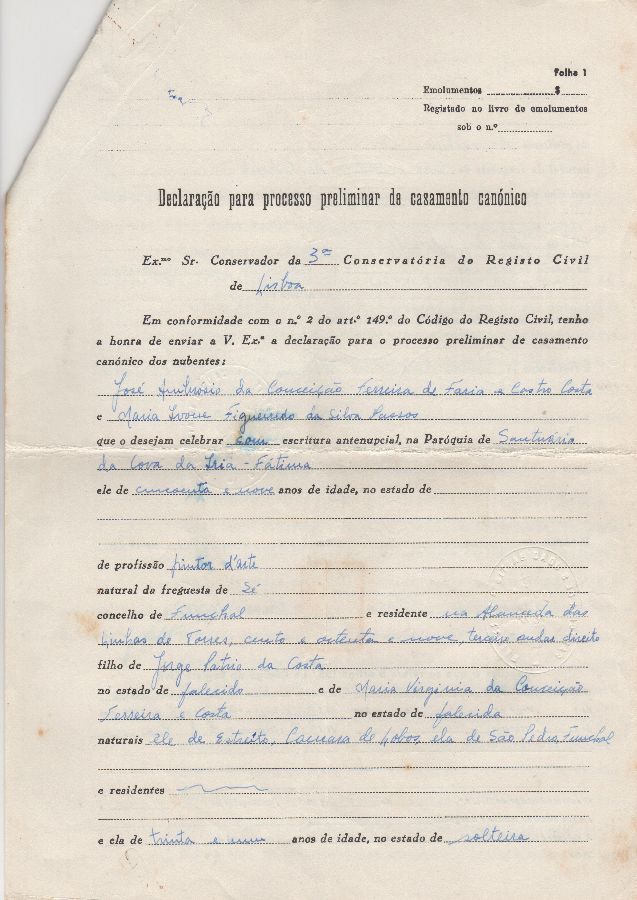 Folha 1
Emolumentos $
Registado no livro de emolumentos
sob o n.º
Declaração para processo preliminar de casamento canónico
Ex.mo Sr. Conservador da 3ª Conservatória do Registo Civil
de Lisboa
Em conformidade com o n.º 2 do art.º 149.º do Código do Registo Civil, tenho
a honra de enviar a V. Ex.ª a declaração para o processo preliminar de casamento
canónico dos nubentes:
José Ambrósio da Conceição Ferreira de Faria e Castro Costa
e Maria Ivone Figueiredo da Silva Passos
que o desejam celebrar com escritura antenupcial, na Paróquia de Santuário
da Cova da Iria - Fátima
ele de cincoenta e nove anos de idade, no estado de
de profissão pintor d'arte
natural da freguesia de Sé
concelho de Funchal e residente na Alameda das
Linhas de Torres, cento e oitenta e nove, terceiro andar direito
filho de Jorge Patrio da Costa
no estado de falecido e de Maria Virgínia da Conceição
Ferreira e Costa no estado de falecida
naturais ele de Estreito, Camara de Lobos, ela de São Pedro, Funchal
e residentes
e ela de trinta e um anos de idade, no estado de solteira